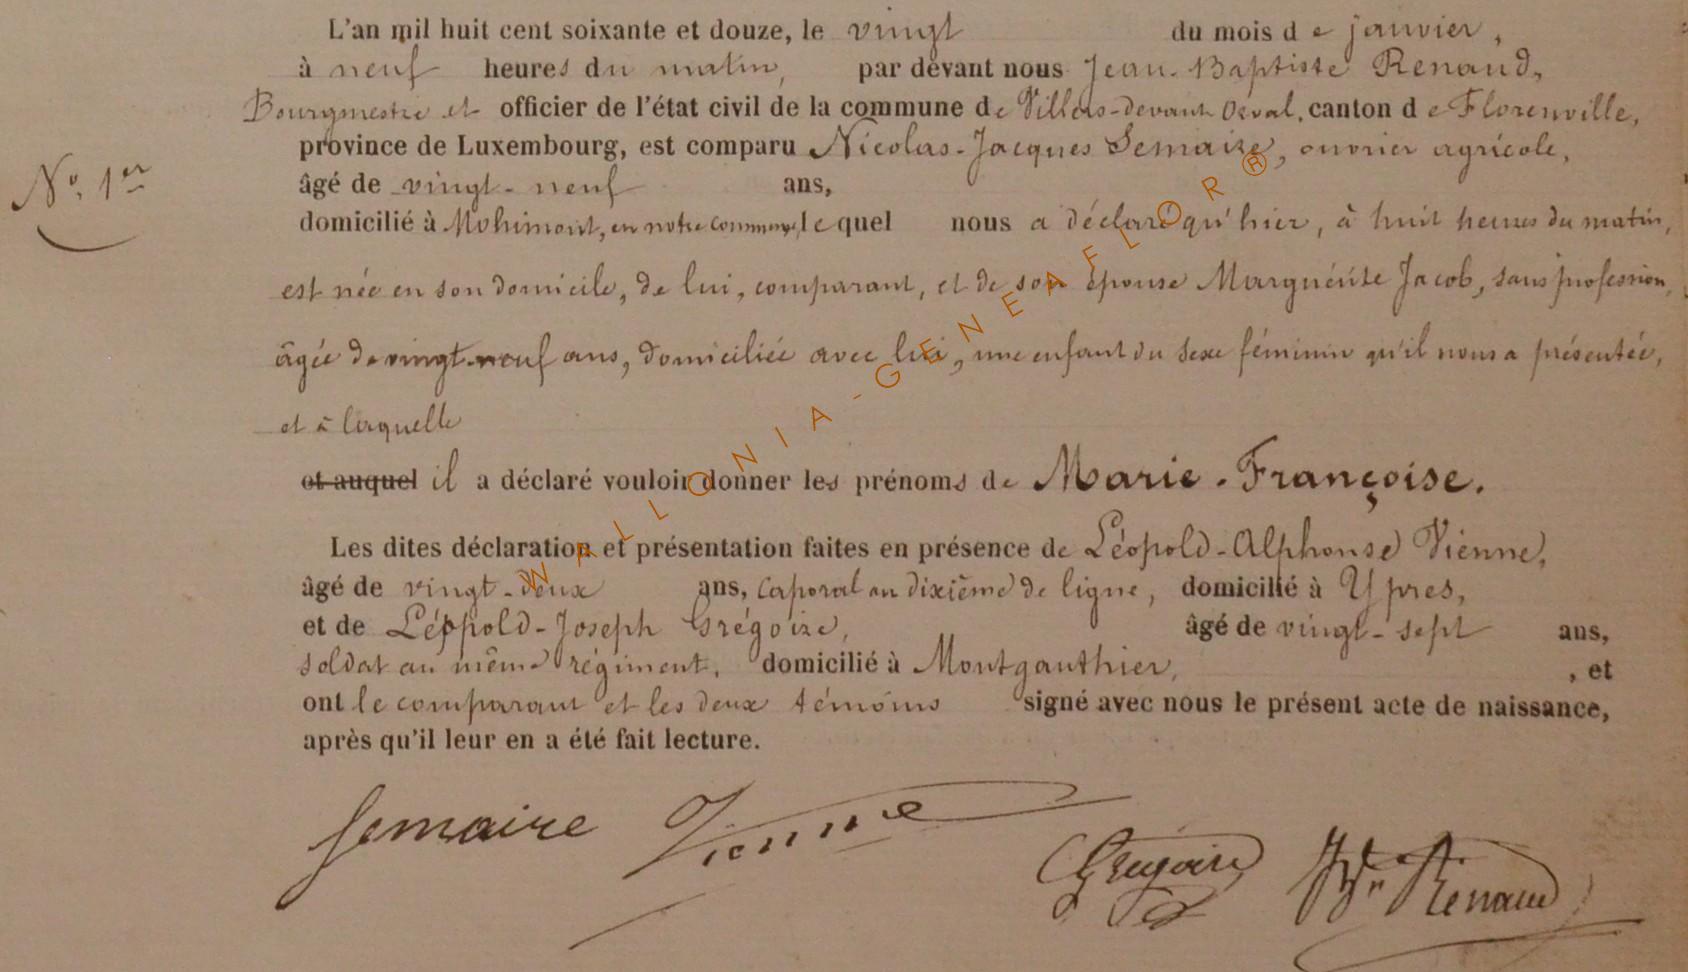 L'an mil huit cent soixante et douze, le vingt du mois de janvier,
à neuf heures du matin, par devant nous Jean-Baptiste Renaud,
Bourgmestre et officier de l'état civil de la commune de Villers-devant Orval, canton de Florenville,
province de Luxembourg, est comparu Nicolas-Jacques Semaire, ouvrier agricole,
N° 1er
âgé de vingt-neuf ans,
domicilié à Mohimont, en notre commune, lequel nous a déclaré qu'hier, à huit heures du matin,
est née en son domicile, de lui, comparant, et de son épouse Marguérite Jacob, sans profession,
âgée de vingt-neuf ans, domiciliée avec lui, une enfant du sexe féminin qu'il nous a présentée,
et à laquelle
et auquel il a déclaré vouloir donner les prénoms de Marie-Françoise.
Les dites déclaration et présentation faites en présence de Léopold-Alphonse Vienne,
âgé de vingt-deux ans, caporal au dixième de ligne, domicilié à Ypres,
et de Léopold-Joseph Grégoire, âgé de vingt-sept ans,
soldat au même régiment, domicilié à Montgauthier, , et
ont le comparant et les deux témoins signé avec nous le présent acte de naissance,
après qu'il leur en a été fait lecture.
Semaire Vienne
Grégoire Renaud
WALLONIA-GENEAFLOR®